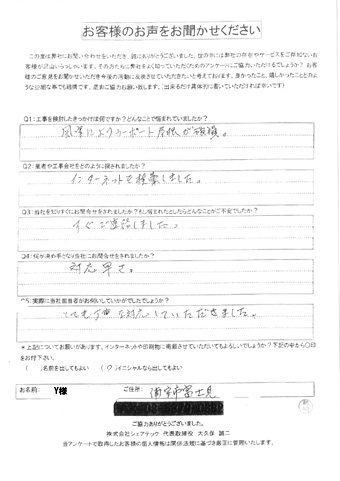 お客様のお声をお聞かせください
この度は弊社にお問い合わせをいただき、誠にありがとうございました。世の中には弊社の存在やサービスをご存知ないお
客様が沢山いらっしゃいます。その方たちに弊社をよく知っていただくためのアンケートにご協力いただけるでしょうか?お
客様のご意見をお聞かせいただき今後の活動に反映させていただきたいと考えております。良かったこと、嬉しかったことのよ
うな公開な事でも結構です。是非ご協力お願い致します。(出来るだけ具体的に書いていただければ幸いです)
Q1:工事を検討したきっかけは何ですか?どんなことで悩まれていましたか?
風害によりカーポート屋根が破損。
Q2:業者や工事会社をどのように探されましたか?
インターネットで検索しました。
Q3:当社を知りすぐにお問合せをされましたか?もし悩まれたとしたらどんなことがご不安でしたか?
すぐご連絡しました。
Q4:何が決め手となり当社にお問合せをされましたか?
対応早さ。
Q5:実際に当社担当者がお伺いしていかがでしたでしょうか?
とても丁寧な対応していただきました。
*上記についてお願いがあります。インターネットや印刷物に掲載させていただいてもよろしいでしょうか?下記の中から〇印
をお付下さい。
( )名前を出してもよい (〇)イニシャルなら出してもよい
お名前: Y様 ご住所: 浦安市富士見
ご協力ありがとうございました。
株式会社シェアテック 代表取締役 大久保 誠二
当アンケートで取得したお客様の個人情報は関係法規に基づき厳正に管理いたします。